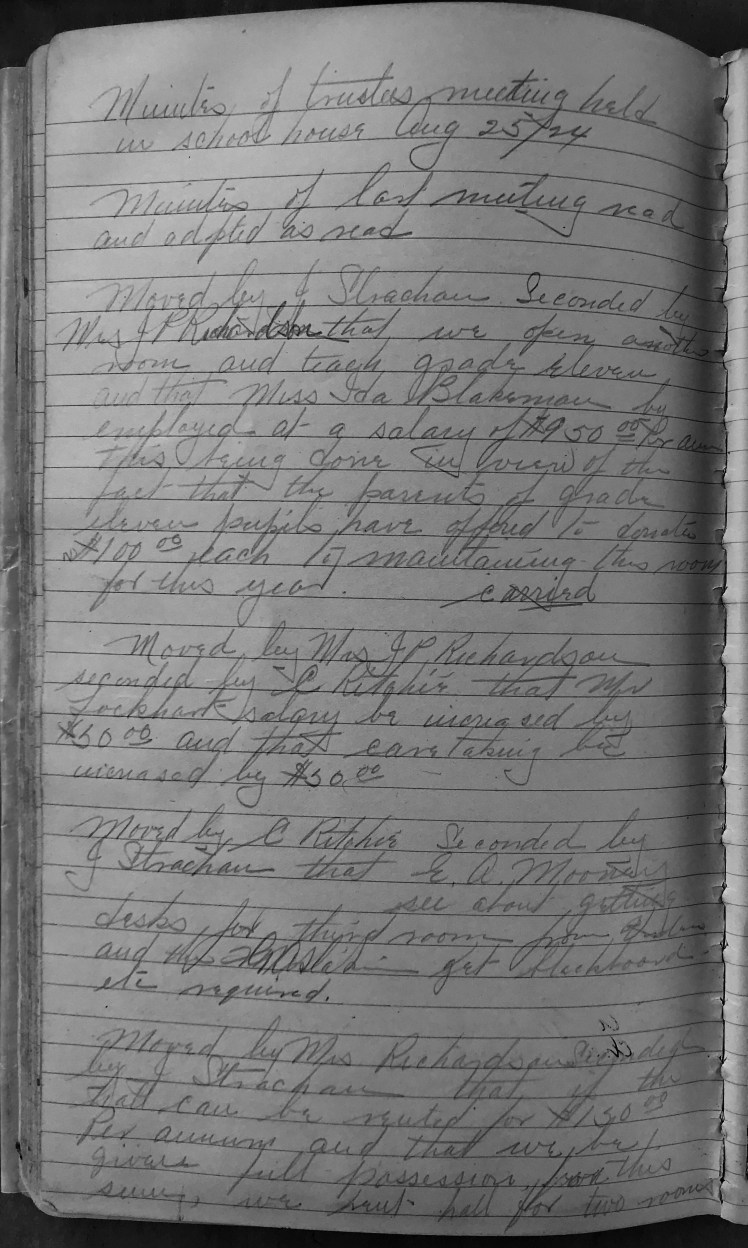 Minutes of trustees meeting held
in school house Aug 25/24
Minutes of last meeting read
and adopted as read
Moved by J Strachan Seconded by
Mrs J P Richardson that we open another
room and teach grade eleven
and that Miss Ida Blakeman by
employed at a salary of $950 00 per ann
this being done in view of the
fact that the parents of grade
eleven pupils have offered to donate
$100 00 each to maintaining this room
for this year. carried
Moved by Mrs J P Richardson
seconded by C Ritchie that Mr
Lockhart salary be increased by
$50 00 and that caretaking be
increased by $50 00
Moved by C Ritchie Seconded by
J Strachan that E. A. Mooney
see about getting
desks for third room from
and get blackboard
etc required.
Moved by Mrs Richardson Seconded
by J Strachan that if the
hall can be rented for $150 00
Per annum and that we be
given full possession for this
sum, we rent hall for two rooms